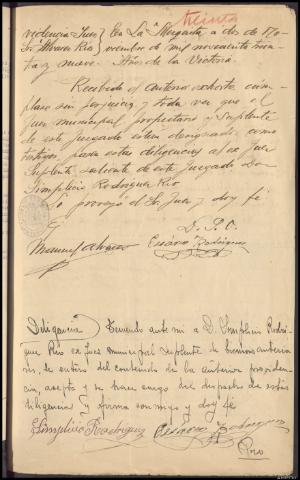 treinta
Providencia Juez } En La Merguda a dos de No-
Sr. Alvarez Rio } viembre de mil novecientos trein-
ta y nueve. Año de la Victoria.
Recibido el anterior exhorto cúm-
plase sin perjuicio y toda vez que el
Juez municipal propietario y Suplente
de este Juzgado están designados como
testigos para estas diligencias al ex Juez
Suplente saliente de este Juzgado Don
Simplicio Rodriguez Rio
Lo proveyó el Sr. Juez y doy fé
D. P. O.
Manuel Alvarez Rodriguez
Diligencia) Teniendo ante mi a D. Simplicio Rodri-
guez Rio ex Juez municipal suplente de anterio-
res, le enteré del contenido de la anterior providen-
cia, acepta y se hace cargo del despacho de estas
diligencias y firma conmigo y doy fé
Simplicio Rodriguez Rodriguez
Rio